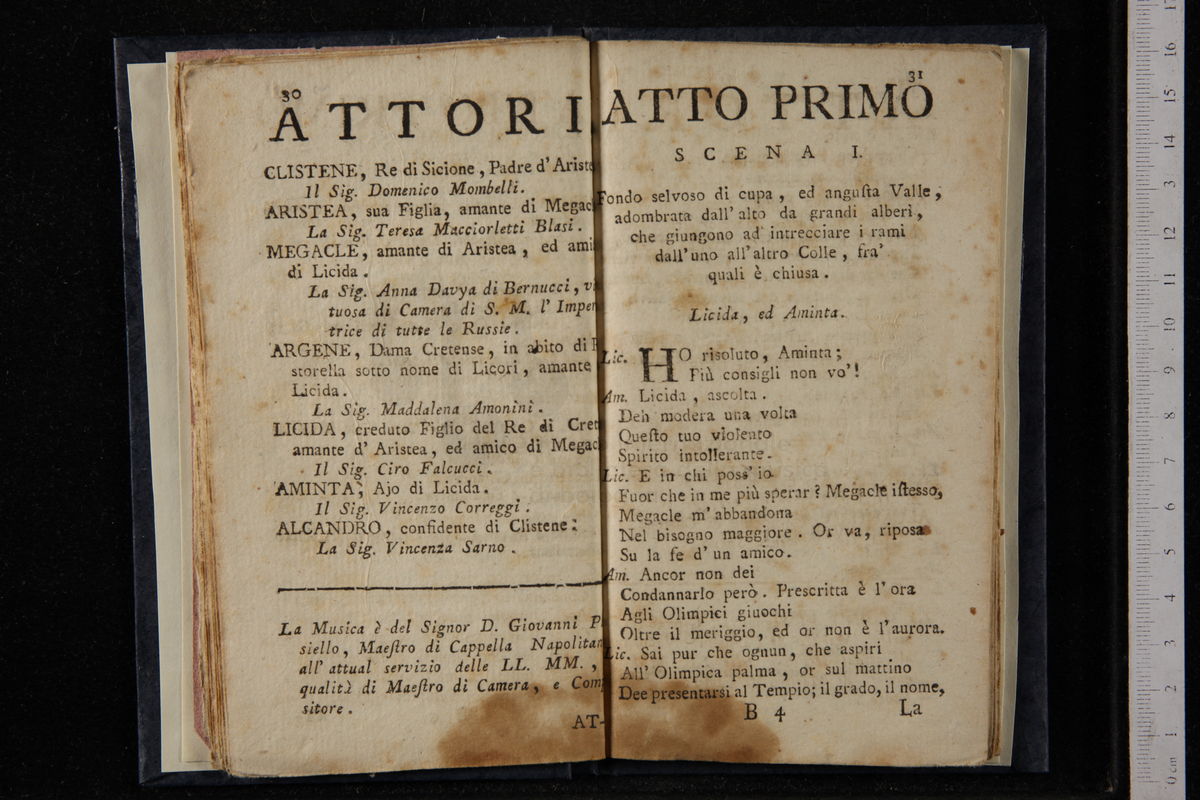 30
ATTORI
CLISTENE, Re di Sicione, Padre d' Ariste
Il Sig. Domenico Mombelli.
ARISTEA, sua Figlia, amante di Megac
La Sig. Teresa Macciorletti Blasi.
MEGACLE, amante di Aristea, ed ami
di Licida.
La Sig. Anna Davya di Bernucci, vi
tuosa di Camera di S. M. l' Imper
trice di tutte le Russie.
ARGENE, Dama Cretense, in abito di P
storella sotto nome di Licori, amante
Licida.
La Sig. Maddalena Amonini.
LICIDA, creduto Figlio del Re di Cret
amante d' Aristea, ed amico di Megac
Il Sig. Ciro Falcucci.
AMINTA, Ajo di Licida.
Il Sig. Vincenzo Correggi.
ALCANDRO, confidente di Clistene:
La Sig. Vincenza Sarno.
La Musica è del Signor D. Giovanni P
siello, Maeſtro di Cappella Napolitan
all' attual servizio delle LL. MM.,
qualità di Maeſtro di Camera, e Comp
sitore.
AT-
31
ATTO PRIMO
SCENA I.
Fondo selvoso di cupa, ed anguſta Valle,
adombrata dall' alto da grandi alberi,
che giungono ad intrecciare i rami
dall' uno all' altro Colle, fra'
quali è chiusa.
Licida, ed Aminta.
Lic. HO risoluto, Aminta;
Più consigli non vo'!
Am. Licida, ascolta.
Deh modera una volta
Queſto tuo violento
Spirito intollerante.
Lic. E in chi poss' io
Fuor che in me più sperar? Megacle iſtesso,
Megacle m' abbandona
Nel bisogno maggiore. Or va, riposa
Su la fe d' un amico.
Am. Ancor non dei
Condannarlo però. Prescritta è l' ora
Agli Olimpici giuochi
Oltre il meriggio, ed or non è l' aurora.
Lic. Sai pur che ognun, che aspiri
All' Olimpica palma, or sul mattino
Dee presentarsi al Tempio; il grado, il nome,
B 4
La
0 cm 1 2 3 4 5 6 7 8 9 10 11 12 13 14 15 16 17